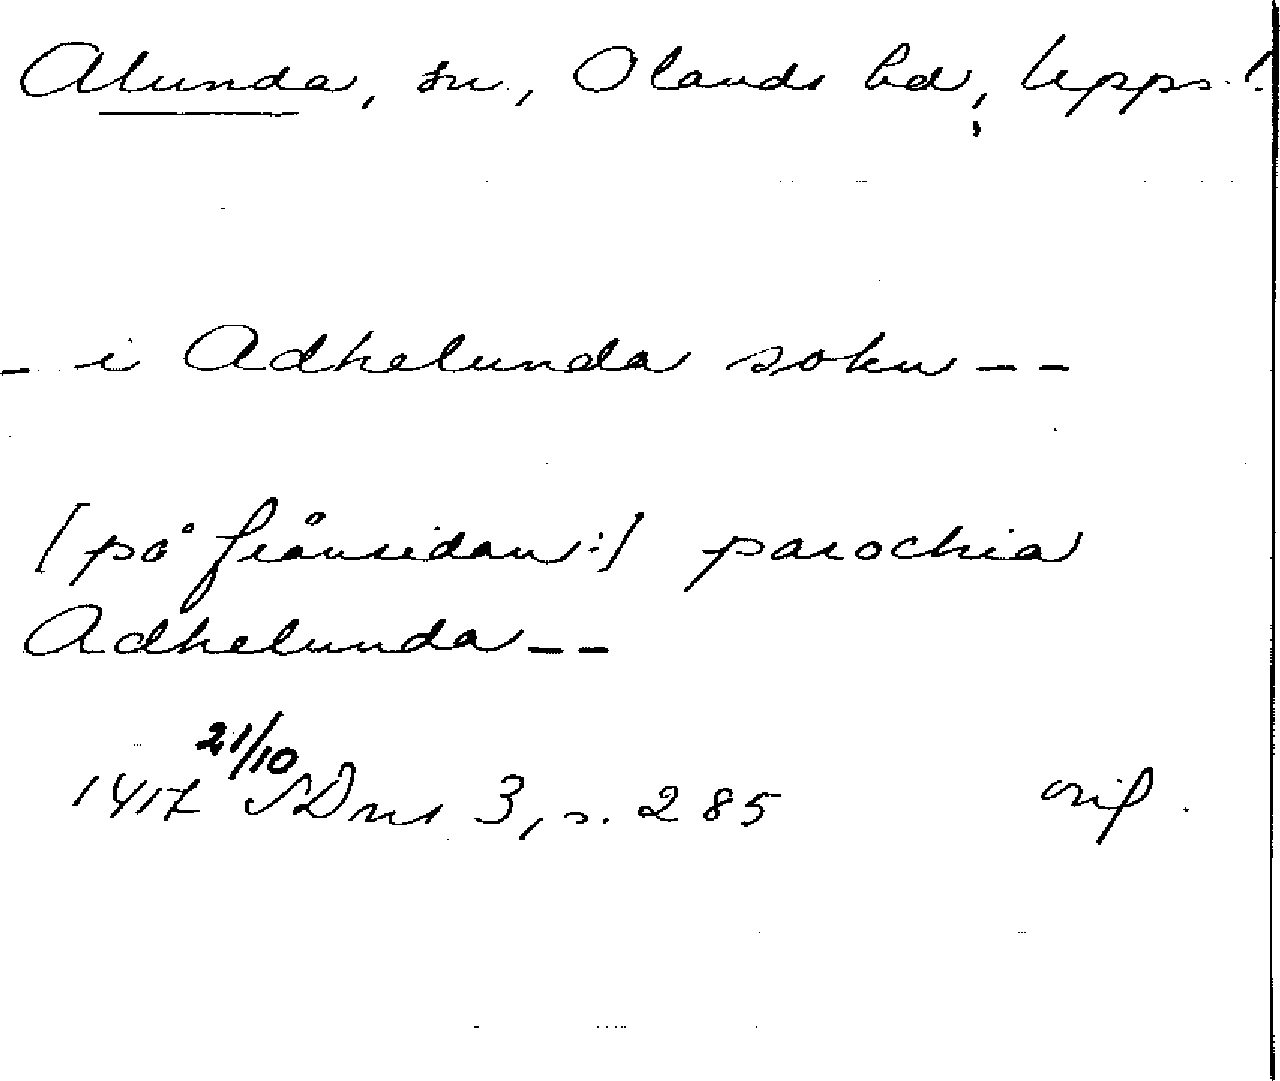 Alunda, sn, Olands hd, Upps. l.
- i Adhelunda sokn - -
[på frånsidan:] parochia
Adhelunda - -
1417 21/10 SDns 3, s. 285 orig.